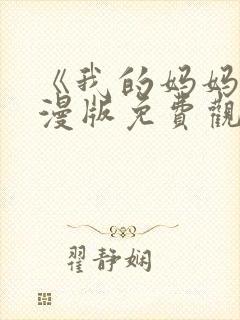 《我的妈妈
漫版免費觀
翟静娴